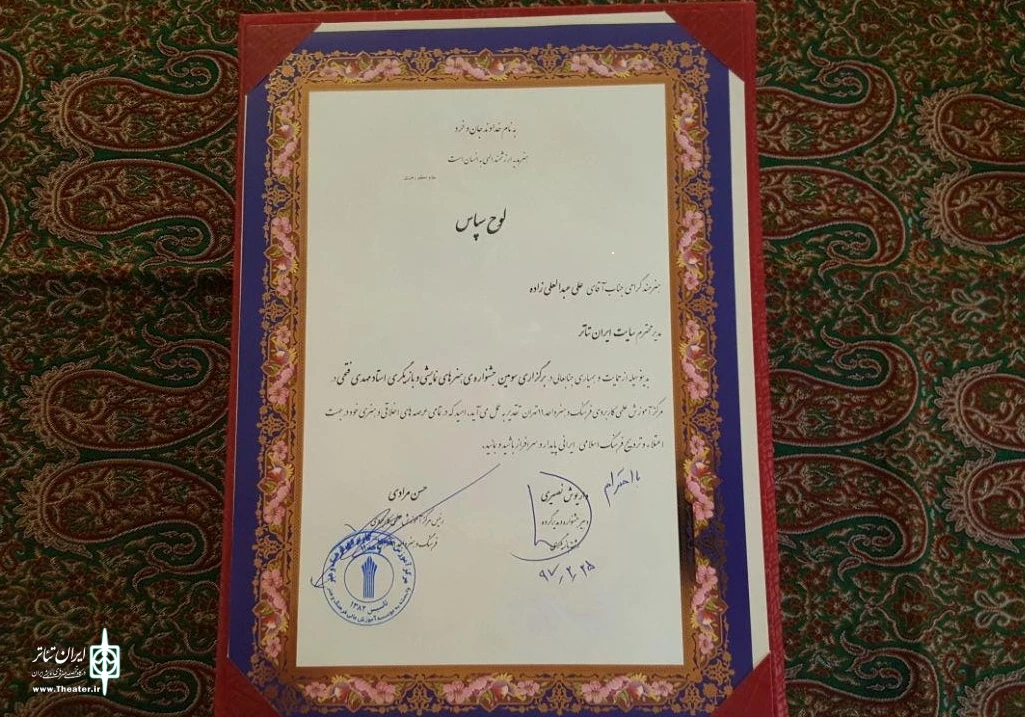 به نام خداوند جان و خرد
هنر هدیه ارزشمند الهی به انسان است
مقام معظم رهبری
لوح سپاس
هنرمند گرامی جناب آقای علی عبدالعلی زاده
مدیر محترم سایت ایران تئاتر
بدینوسیله از عنایت و همیاری جنابعالی در برگزاری سومین جشنواره ی هنرهای نمایشی و بازیگری استاد مهدی فقهی در
مرکز آموزش علمی کاربردی فرهنگ و هنر واحد ۱۱ تهران تقدیر به عمل می آید، امید که در تمامی عرصه های اخلاقی و هنری خود در جهت
اعتلاء و ترویج فرهنگ اسلامی ایرانی پایدار و سرافراز باشید و بمانید.
با احترام
داریوش نصیری
دبیر جشنواره و مدیر گروه
۹۷/۲/۲۵
حسن مرادی
رئیس مرکز آموزش علمی کاربردی
فرهنگ و هنر واحد
تاسیس ۱۳۸۲
ایران تئاتر
www.Theater.ir